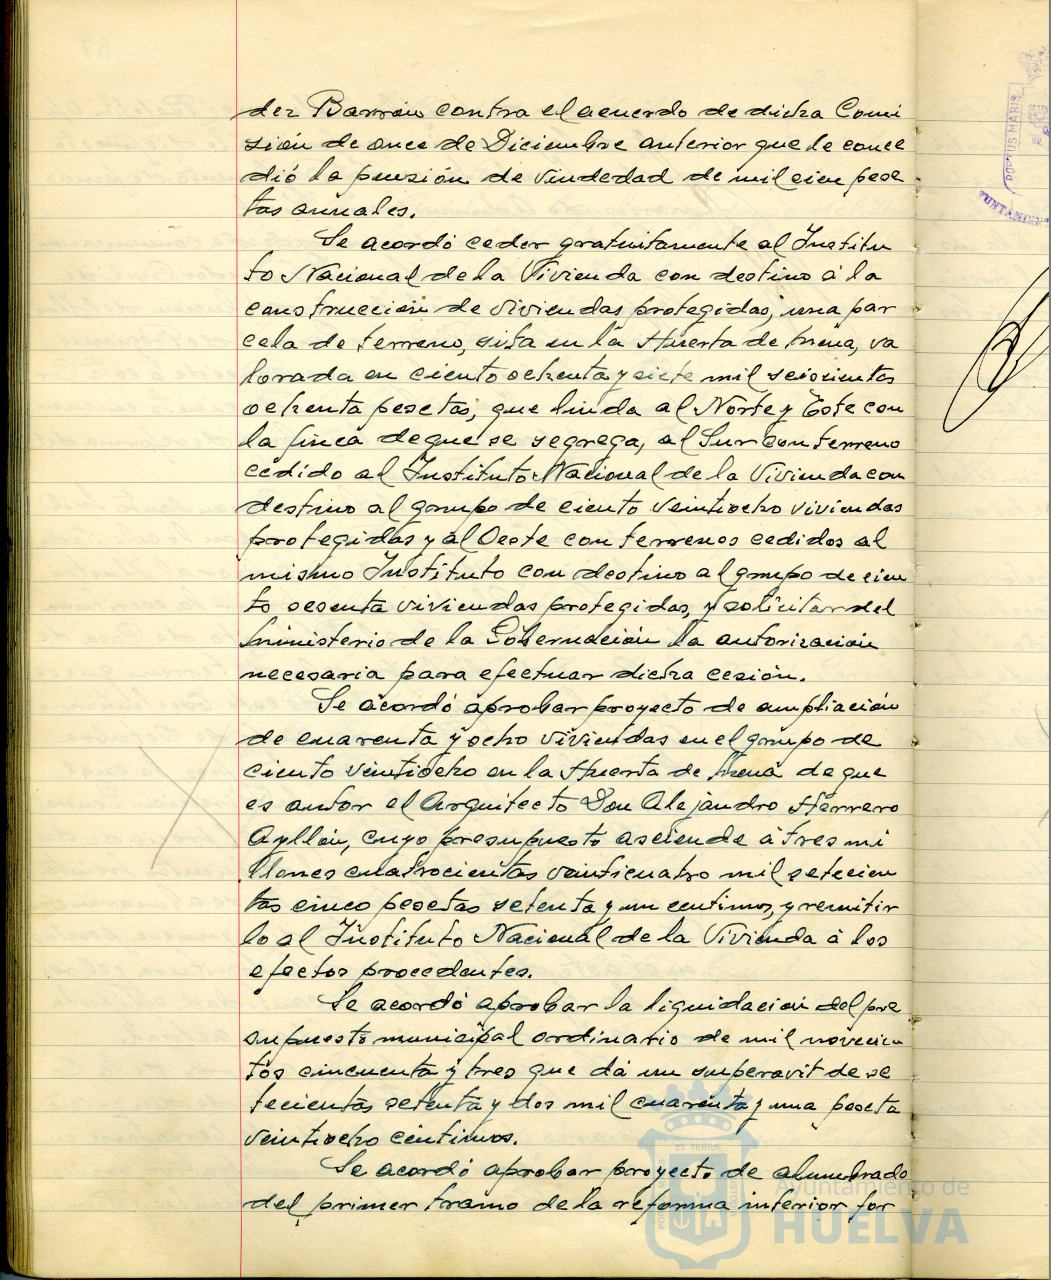 dez Barrón contra el acuerdo de dicha Comi
sión de once de Diciembre anterior que le conce
dió la pensión de viudedad de mil cien pese
tas anuales.
Se acordó ceder gratuitamente al Institu
to Nacional de la Vivienda con destino á la
construcción de viviendas protegidas, una par
cela de terreno, sita en la Huerta de Mena, va
lorada en ciento ochenta y siete mil seiscientas
ochenta pesetas, que linda al Norte y Este con
la finca de que se segrega, al Sur con terreno
cedido al Instituto Nacional de la Vivienda con
destino al grupo de ciento veintiocho viviendas
protegidas y al Oeste con terrenos cedidos al
mismo Instituto con destino al grupo de cien
to sesenta viviendas protegidas, y solicitar del
Ministerio de la Gobernación la autorización
necesaria para efectuar dicha cesión.
Se acordó aprobar proyecto de ampliación
de cuarenta y ocho viviendas en el grupo de
ciento veintiocho en la Huerta de Mena de que
es autor el Arquitecto Don Alejandro Herrero
Ayllón, cuyo presupuesto asciende á tres mi
llones cuatrocientas veinticuatro mil setecien
tas cinco pesetas setenta y un centimos, y remitir
lo al Instituto Nacional de la Vivienda á los
efectos procedentes.
Se acordó aprobar la liquidación del pre
supuesto municipal ordinario de mil novecien
tos cincuenta y tres que dá un superavit de se
tecientas setenta y dos mil cuarenta y una peseta
veintiocho centimos.
Se acordó aprobar proyecto de alumbrado
del primer tramo de la reforma interior for
PORTUS MARIS
Ayuntamiento de
HUELVA